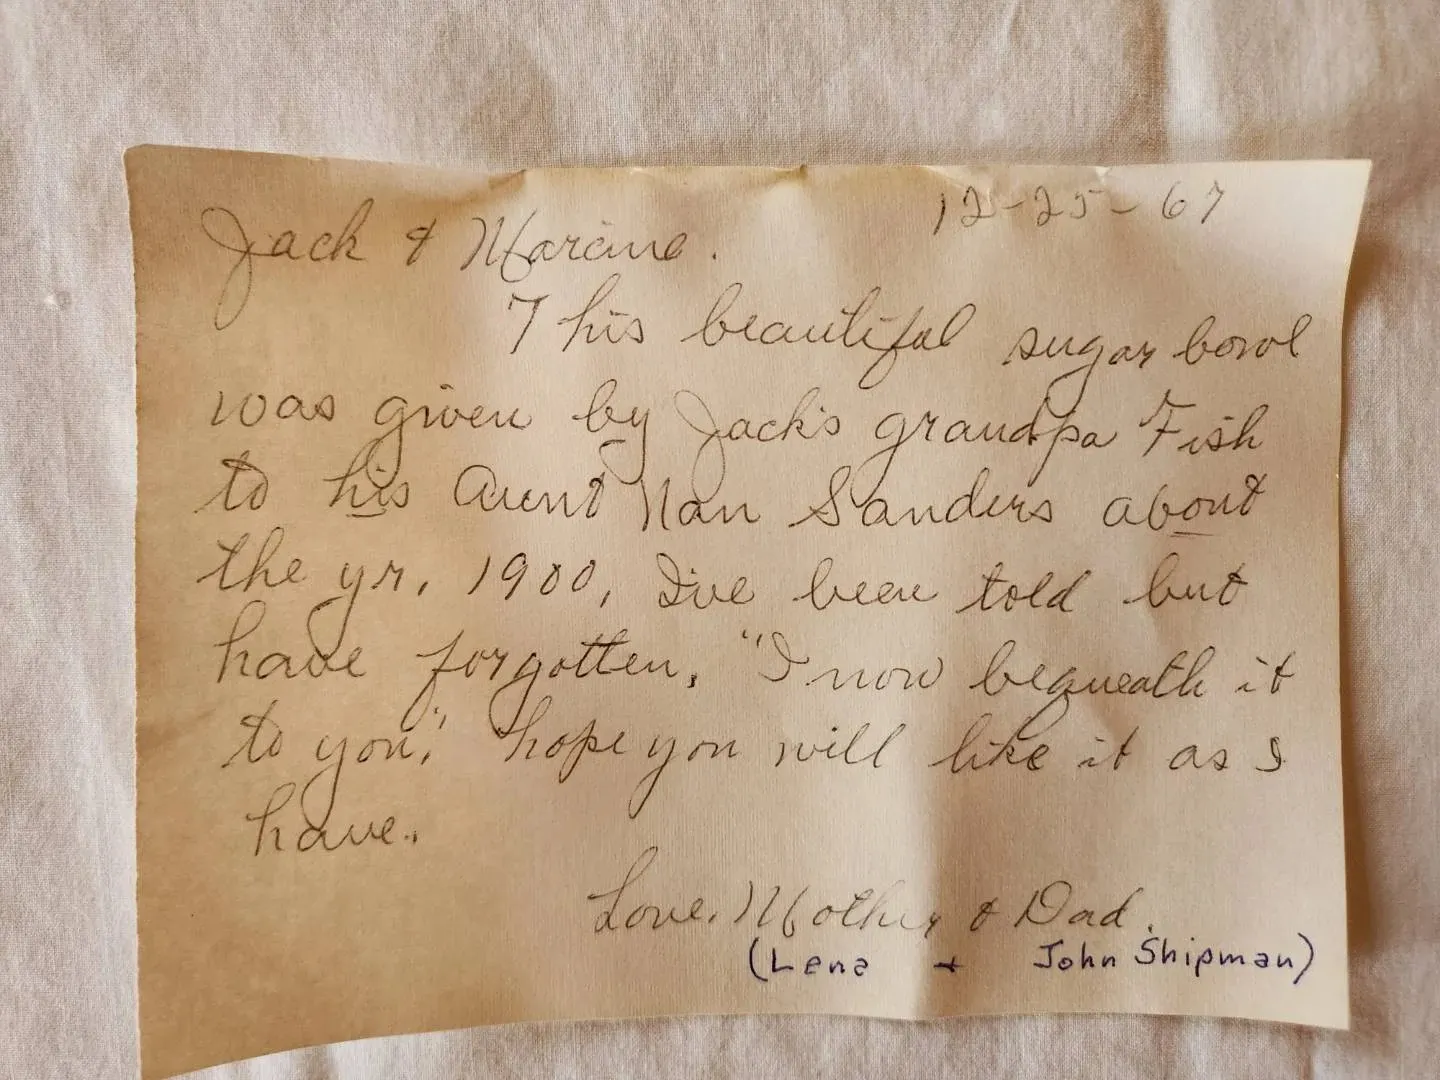 12-25-67
Jack & Marcine.
This beautiful sugar bowl
was given by Jack's grandpa Fish
to his Aunt Nan Sanders about
the yr. 1900, I've been told but
have forgotten. "I now bequeath it
to you." hope you will like it as I
have.
Love. Mother & Dad.
(Lena + John Shipman)